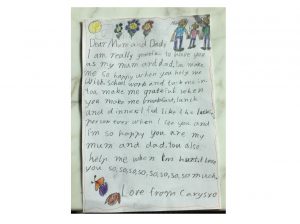 Dear Mum and Dady
I am really grateful to have you
as my mum and dad, You make
me so happy when you help me
with school work and
You make me grateful when
you make me breakfast, lunch
and dinner I feel like the luckiest
person ever when I see you and
I'm so happy you are my
mum and dad. You also
help me when I'm hurt I love
you so, so, so, so, so, so, so much.
Love from